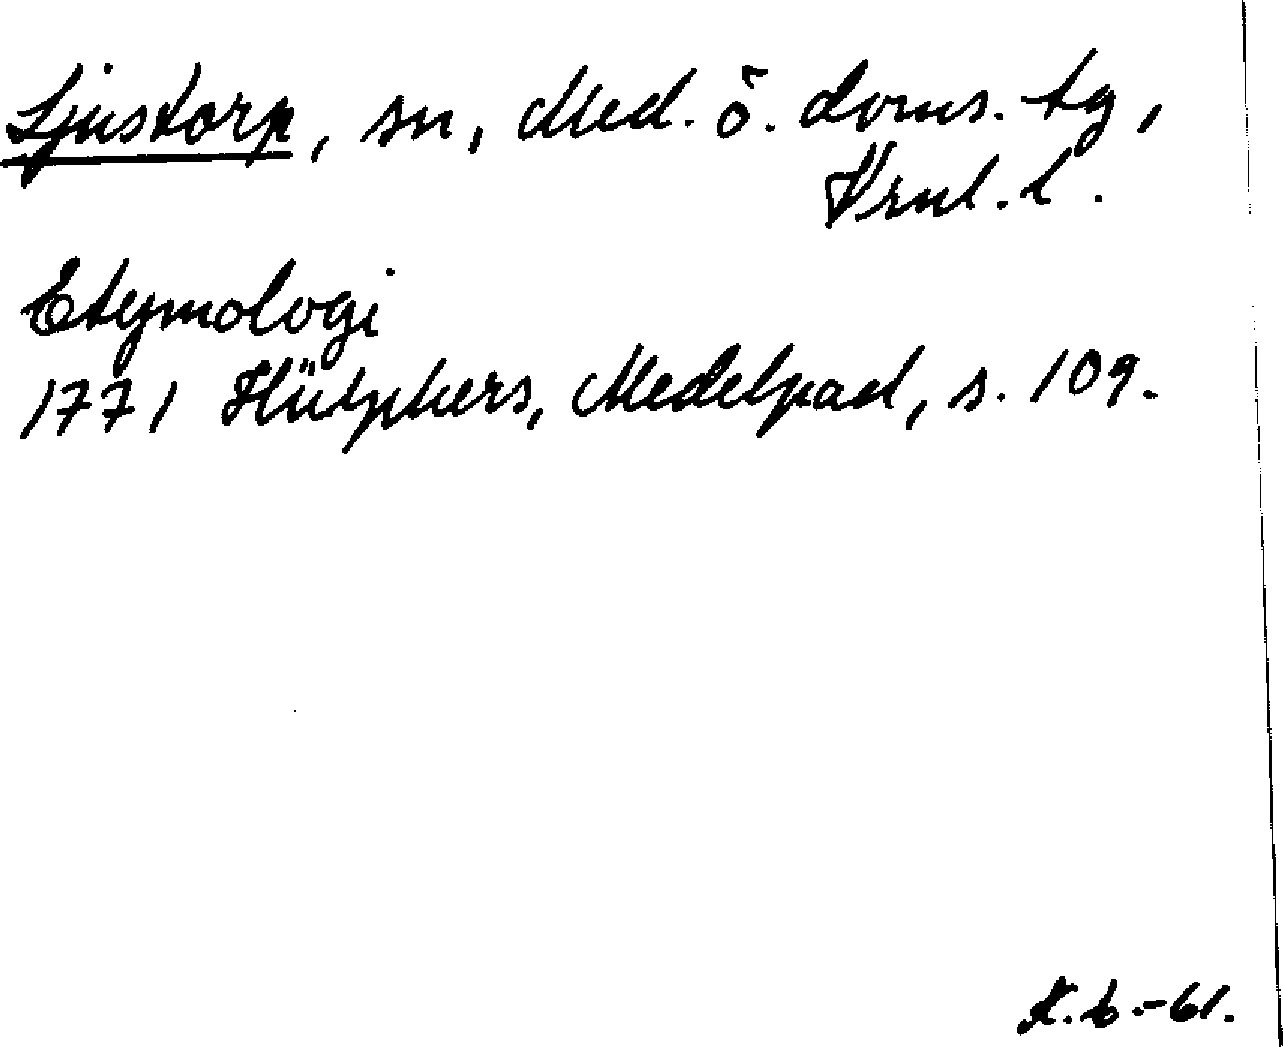 Ljustorp, sn, Med. ö. doms. tg,
Vrnl. l.
Etymologi
1771 Hülphers, Medelpad, s. 109.